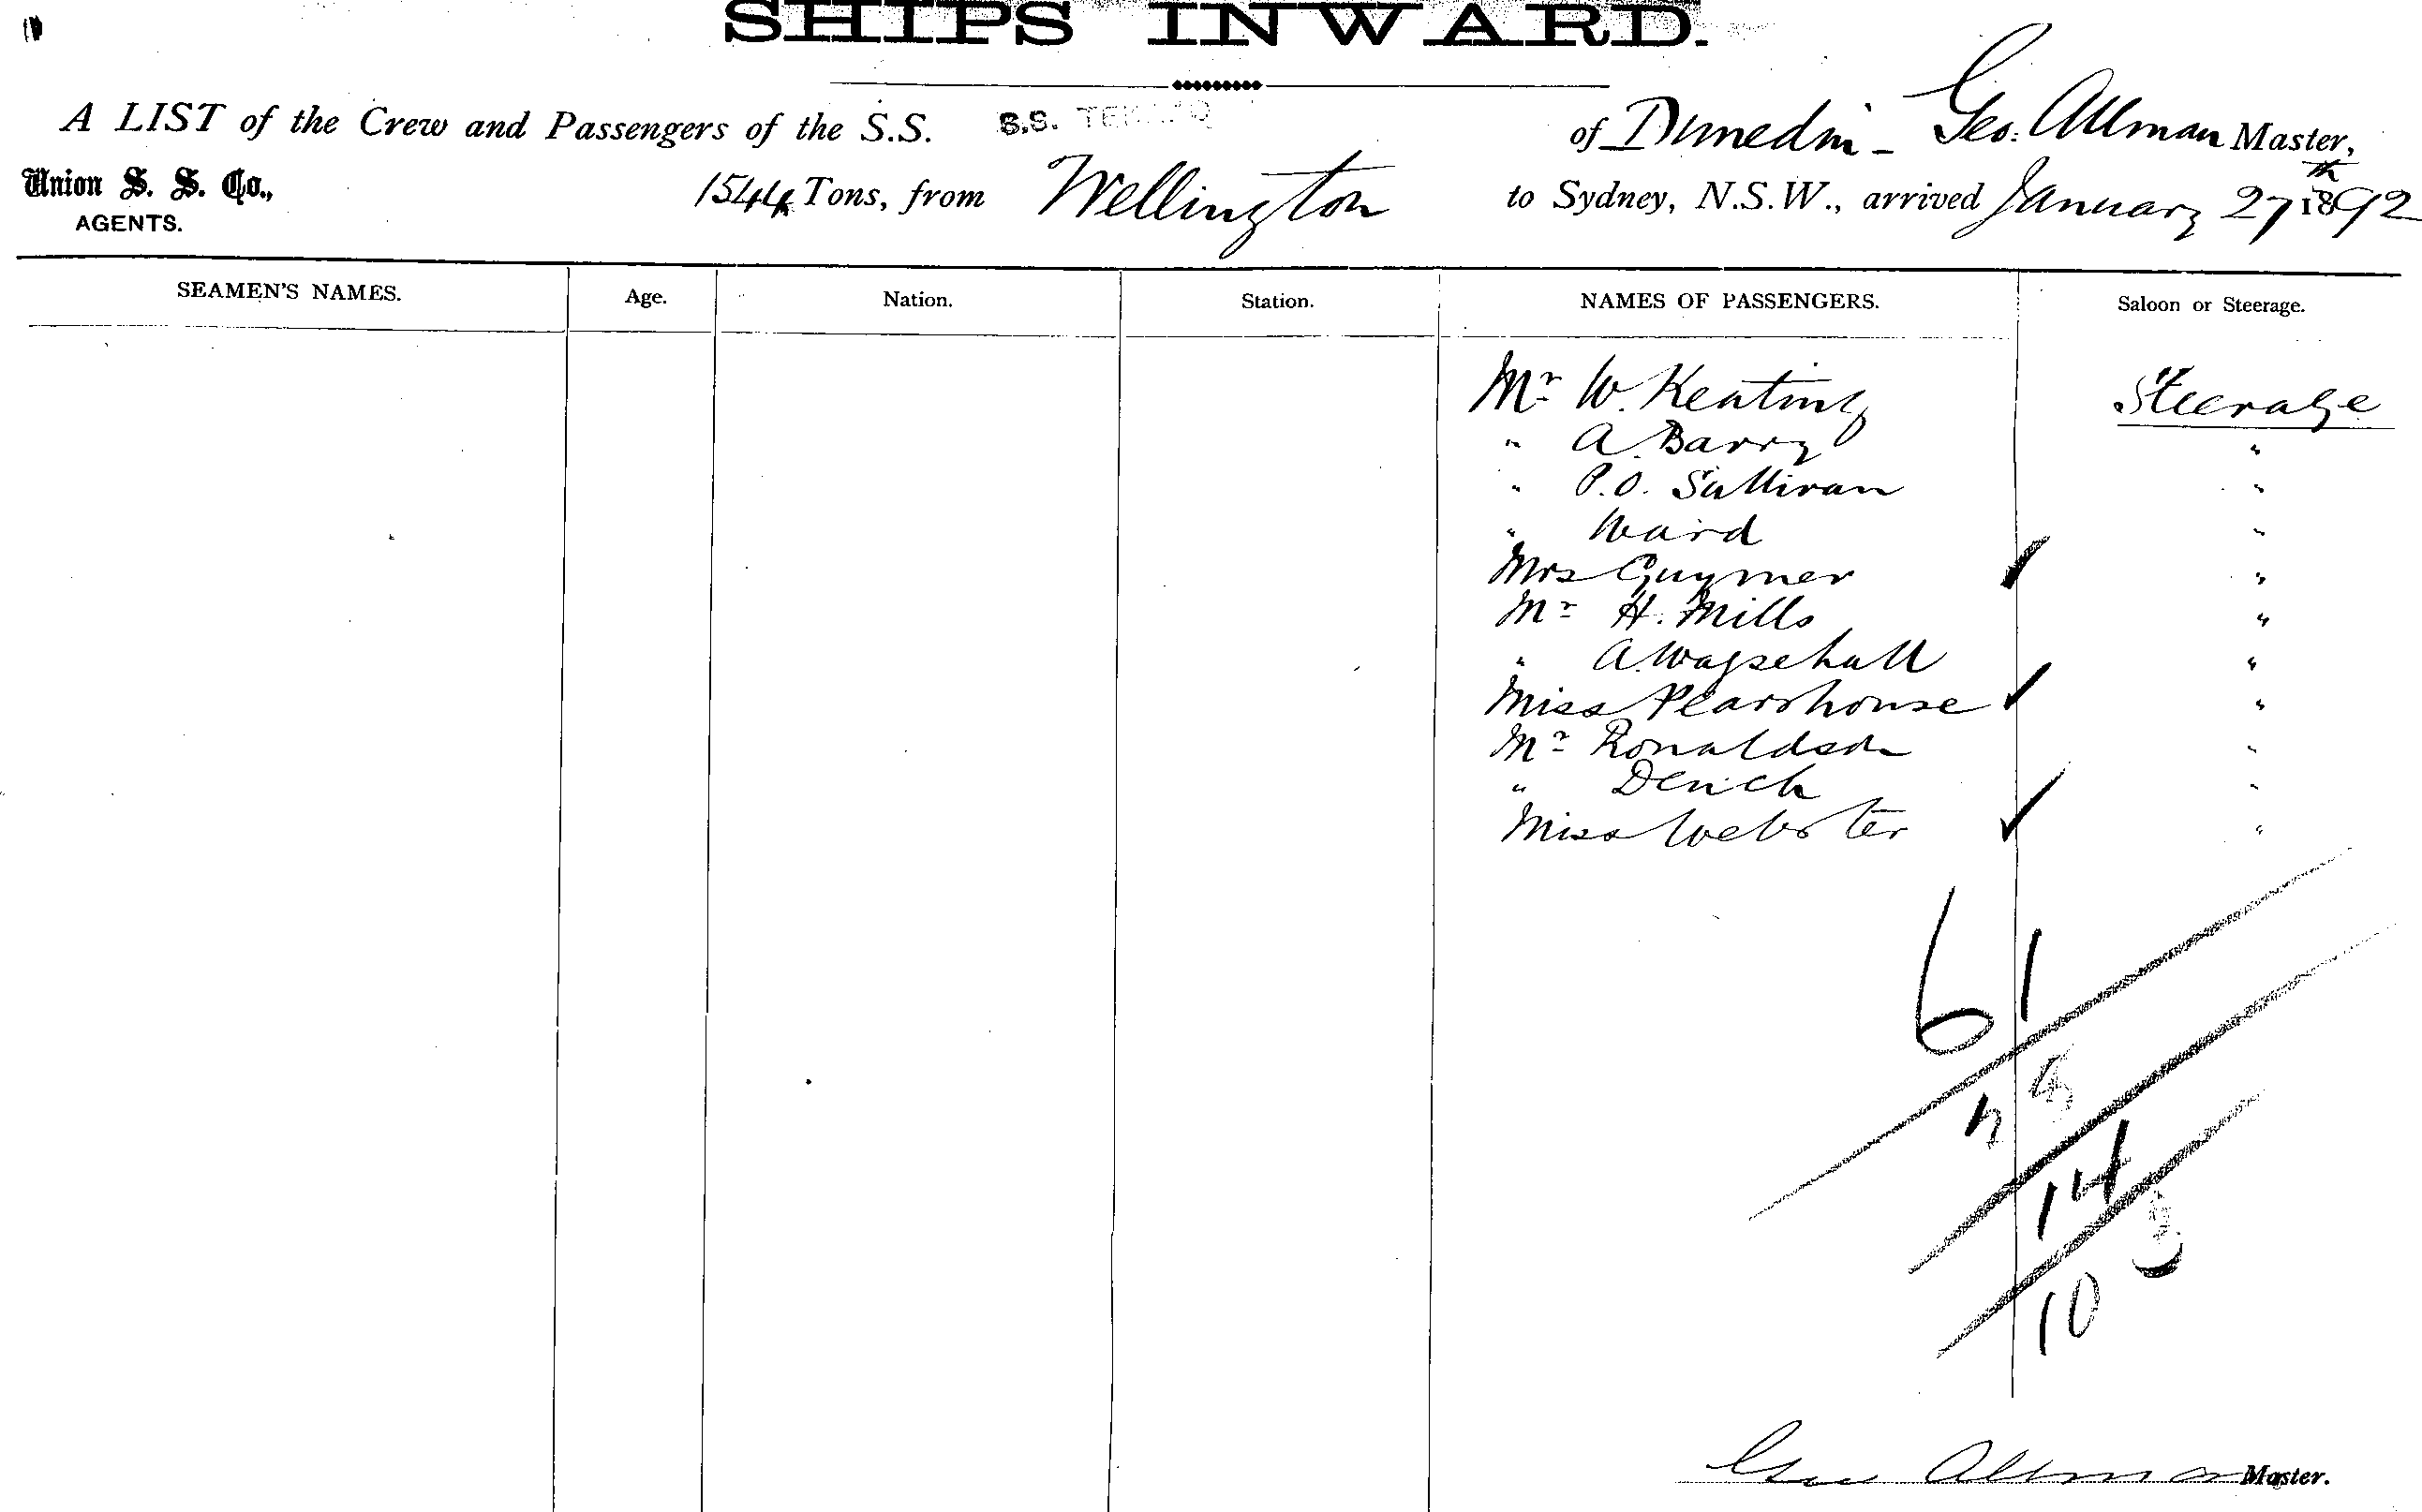 SHIPS INWARD.
A LIST of the Crew and Passengers of the S.S. S.S. TEKAPO of Dunedin - Geo. Allman Master,
Union S. S. Co., 1544 Tons, from Wellington to Sydney, N.S.W., arrived January 27th 1892
AGENTS.
SEAMEN'S NAMES. Age. Nation. Station. NAMES OF PASSENGERS. Saloon or Steerage.
Mr W. Keating Steerage
" A. Barry "
" P. O. Sullivan "
" Ward "
Mrs Guymer ✓ "
Mr H. Mills "
" A. "
Miss Pearshouse ✓ "
Mr Ronaldson "
" Dench "
Miss Webster ✓ "
61
14
10
Geo Allman Master.